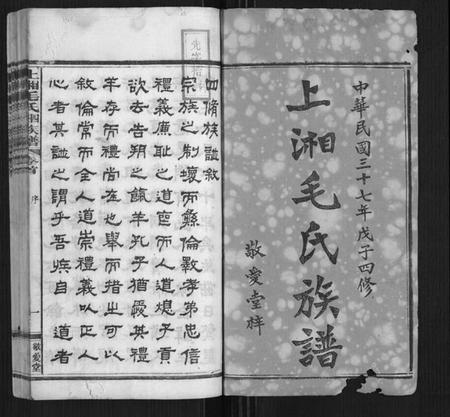 中華民國三十七年戊子四修
上湘毛氏族譜
敬愛堂梓
四脩族譜敘
宗族之制壞而彝倫斁孝弟忠信
禮義廉恥之道喪而人道熄子貢
欲去告朔之餼羊孔子猶愛其禮
羊存而禮尚在也舉而措之可以
敘倫常而全人道崇禮義以正人
心者其譜之謂乎吾族自 道者
上湘毛氏四修族譜 卷首 序 一 敬愛堂